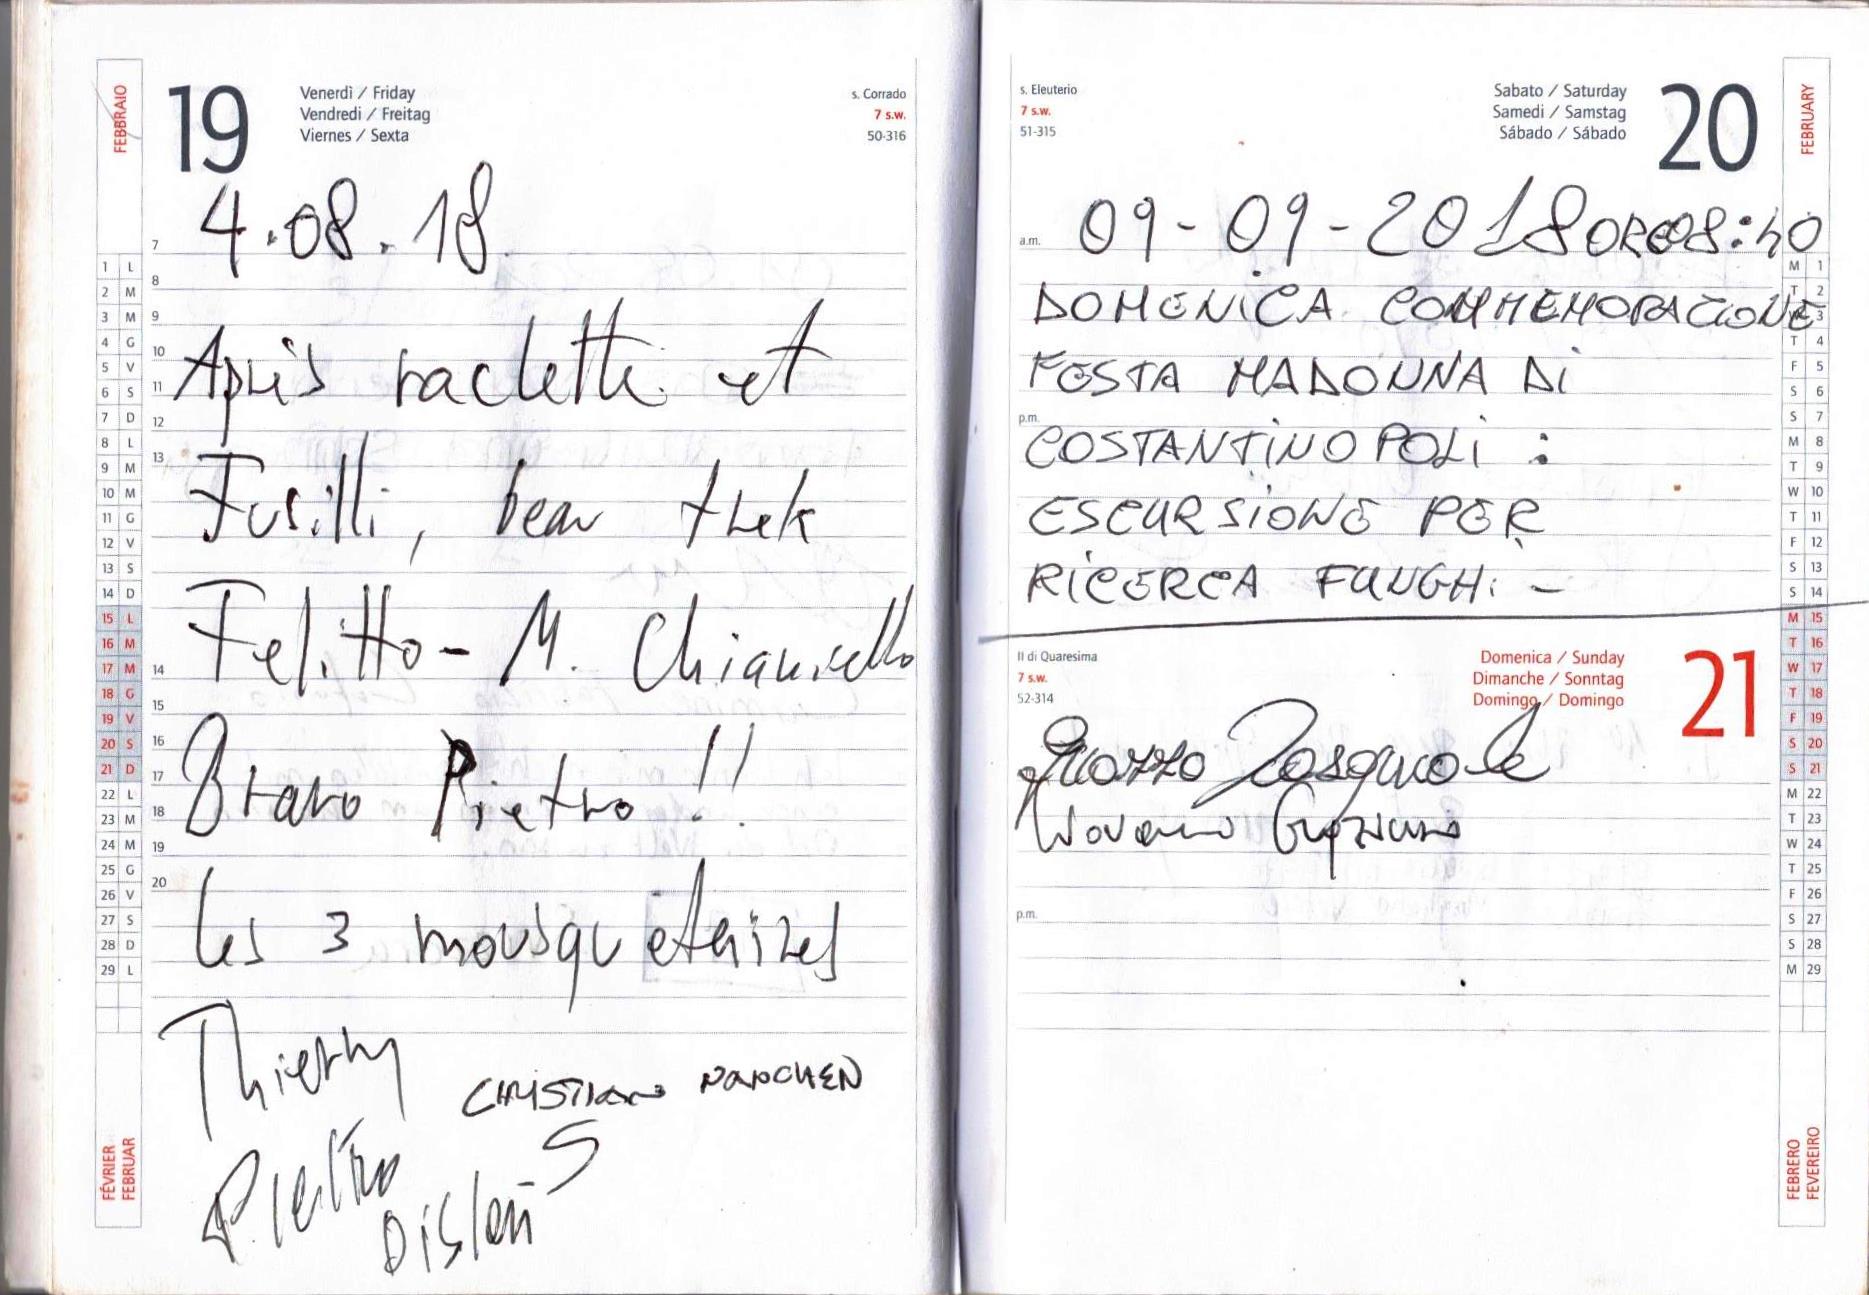 FEBBRAIO
19
Venerdì / Friday
Vendredi / Freitag
Viernes / Sexta
s. Corrado
7 s.w.
50-316
4.08.18
Après raclette et
Fusilli, beau trek
Felitto - M. Chianiello
Bravo Pietro !!
Les 3 mousquetaires
Thierry
CHRISTIAN
Pietro
7
8
9
10
11
12
13
14
15
16
17
18
19
20
1 L
2 M
3 M
4 G
5 V
6 S
7 D
8 L
9 M
10 M
11 G
12 V
13 S
14 D
15 L
16 M
17 M
18 G
19 V
20 S
21 D
22 L
23 M
24 M
25 G
26 V
27 S
28 D
29 L
FÉVRIER
FEBRUAR
s. Eleuterio
7 s.w.
51-315
Sabato / Saturday
Samedi / Samstag
Sábado / Sábado
20
FEBRUARY
a.m.
09-09-2018 ORE 08:40
DOMENICA COMMEMORAZIONE
FESTA MADONNA DI
p.m.
COSTANTINOPOLI :
ESCURSIONE PER
RICERCA FUNGHI -
II di Quaresima
7 s.w.
52-314
Domenica / Sunday
Dimanche / Sonntag
Domingo / Domingo
21
Pasquale
p.m.
M 1
T 2
W 3
T 4
F 5
S 6
S 7
M 8
T 9
W 10
T 11
F 12
S 13
S 14
M 15
T 16
W 17
T 18
F 19
S 20
S 21
M 22
T 23
W 24
T 25
F 26
S 27
S 28
M 29
FEBRERO
FEVEREIRO